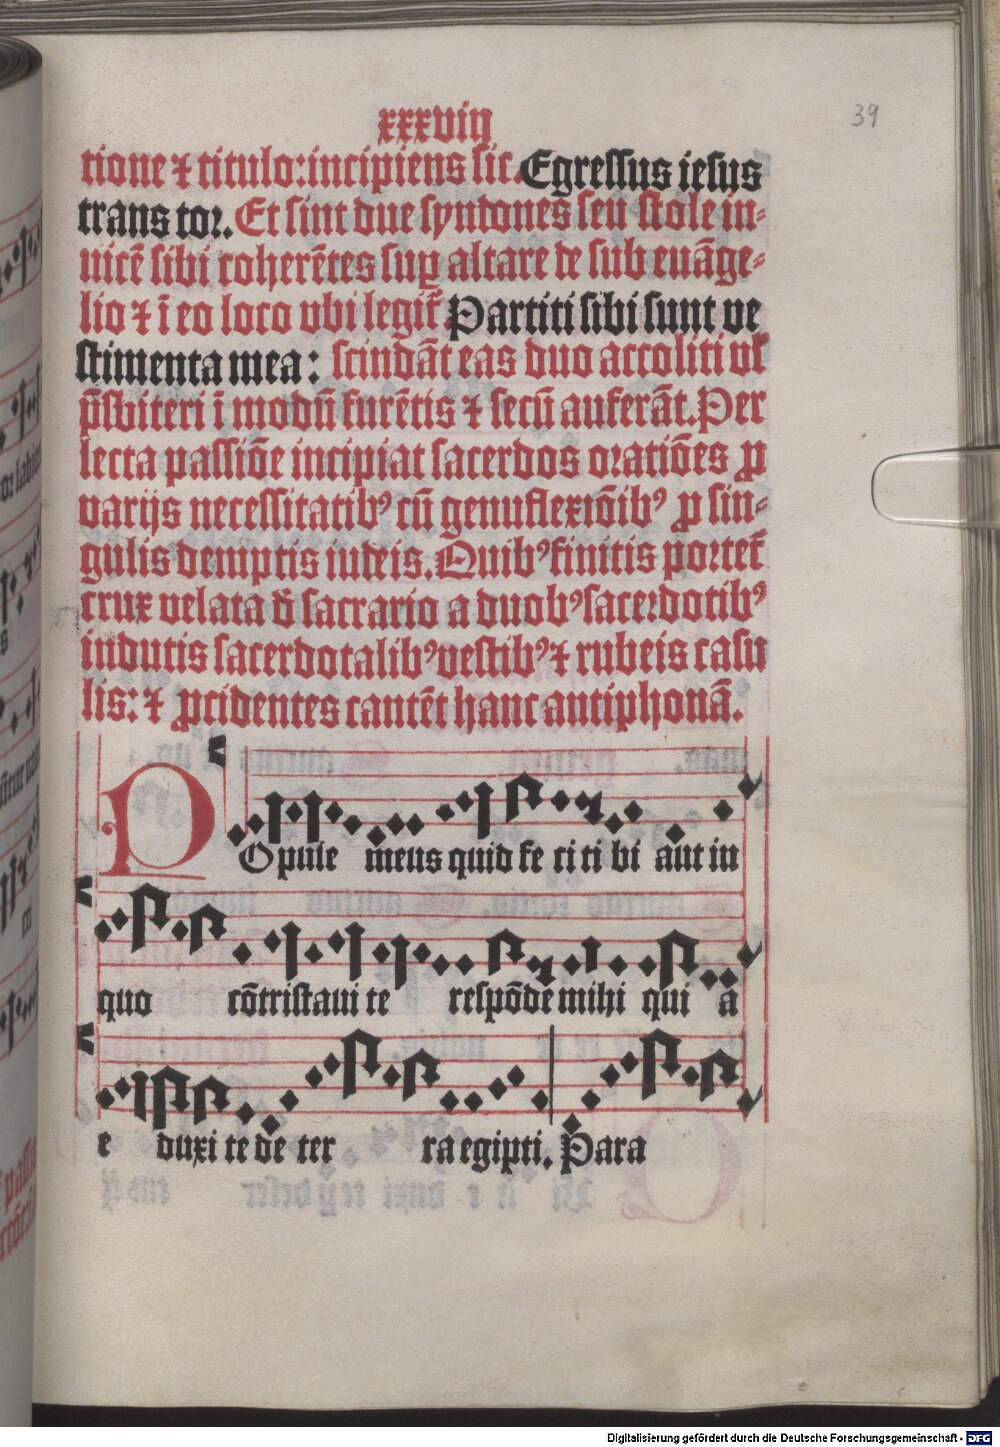 xxxviij
39
tione ⁊ titulo: incipiens sic. Egressus iesus
trans tor. Et sint due syndones seu stole in-
uicē sibi coherētes sup altare de sub euāge-
lio ⁊ ī eo loco vbi legit̄ Partiti sibi sunt ve
stimenta mea: scindāt eas duo accoliti vl̄
p̄sbiteri ī modū furētis ⁊ secū auferāt. Per
lecta passiōe incipiat sacerdos oratiōes ꝓ
varijs necessitatibꝰ cū genuflexiōibꝰ ꝓ sin-
gulis demptis iudeis. Quibꝰ finitis portet̄
crux velata d̄ sacrario a duobꝰ sacerdotibꝰ
indutis sacerdotalibꝰ vestibꝰ ⁊ rubeis casu
lis: ⁊ ꝓcidentes cantēt hanc antiphonā.
POpule meus quid fe ci ti bi aut in
quo cōtristaui te respōde mihi qui a
e duxi te de ter ra egipti. Para
Digitalisierung gefördert durch die Deutsche Forschungsgemeinschaft - DFG